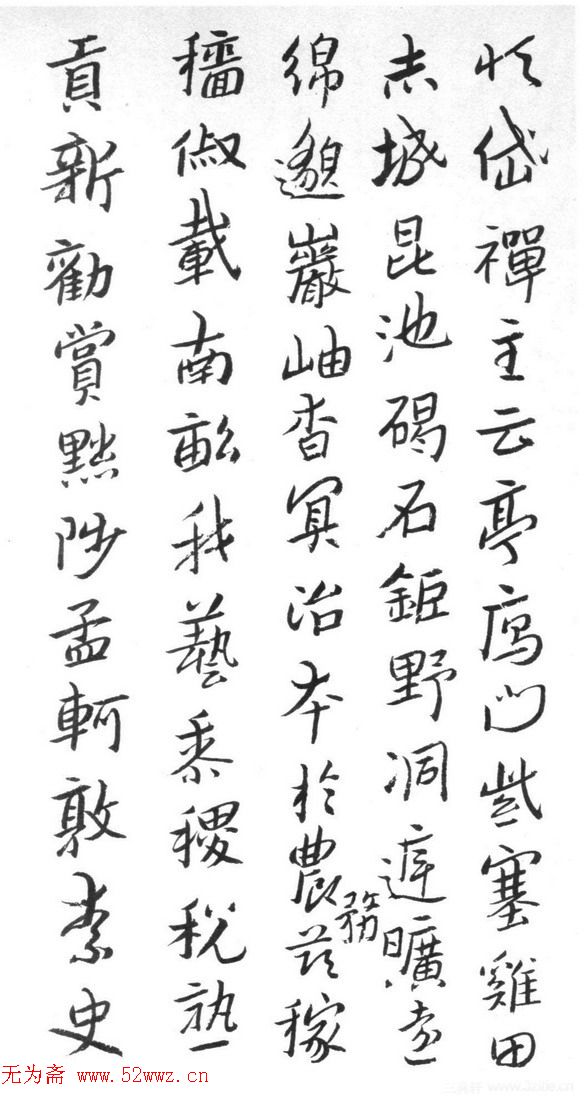 恒岱禪主云亭鴈門紫塞雞田
赤城昆池碣石鉅野洞庭曠遠
綿邈巖岫杳冥治本於農務茲稼
穡俶載南畝我藝黍稷稅熟
貢新勸賞黜陟孟軻敦素史
无为斋 www.52wwz.cn